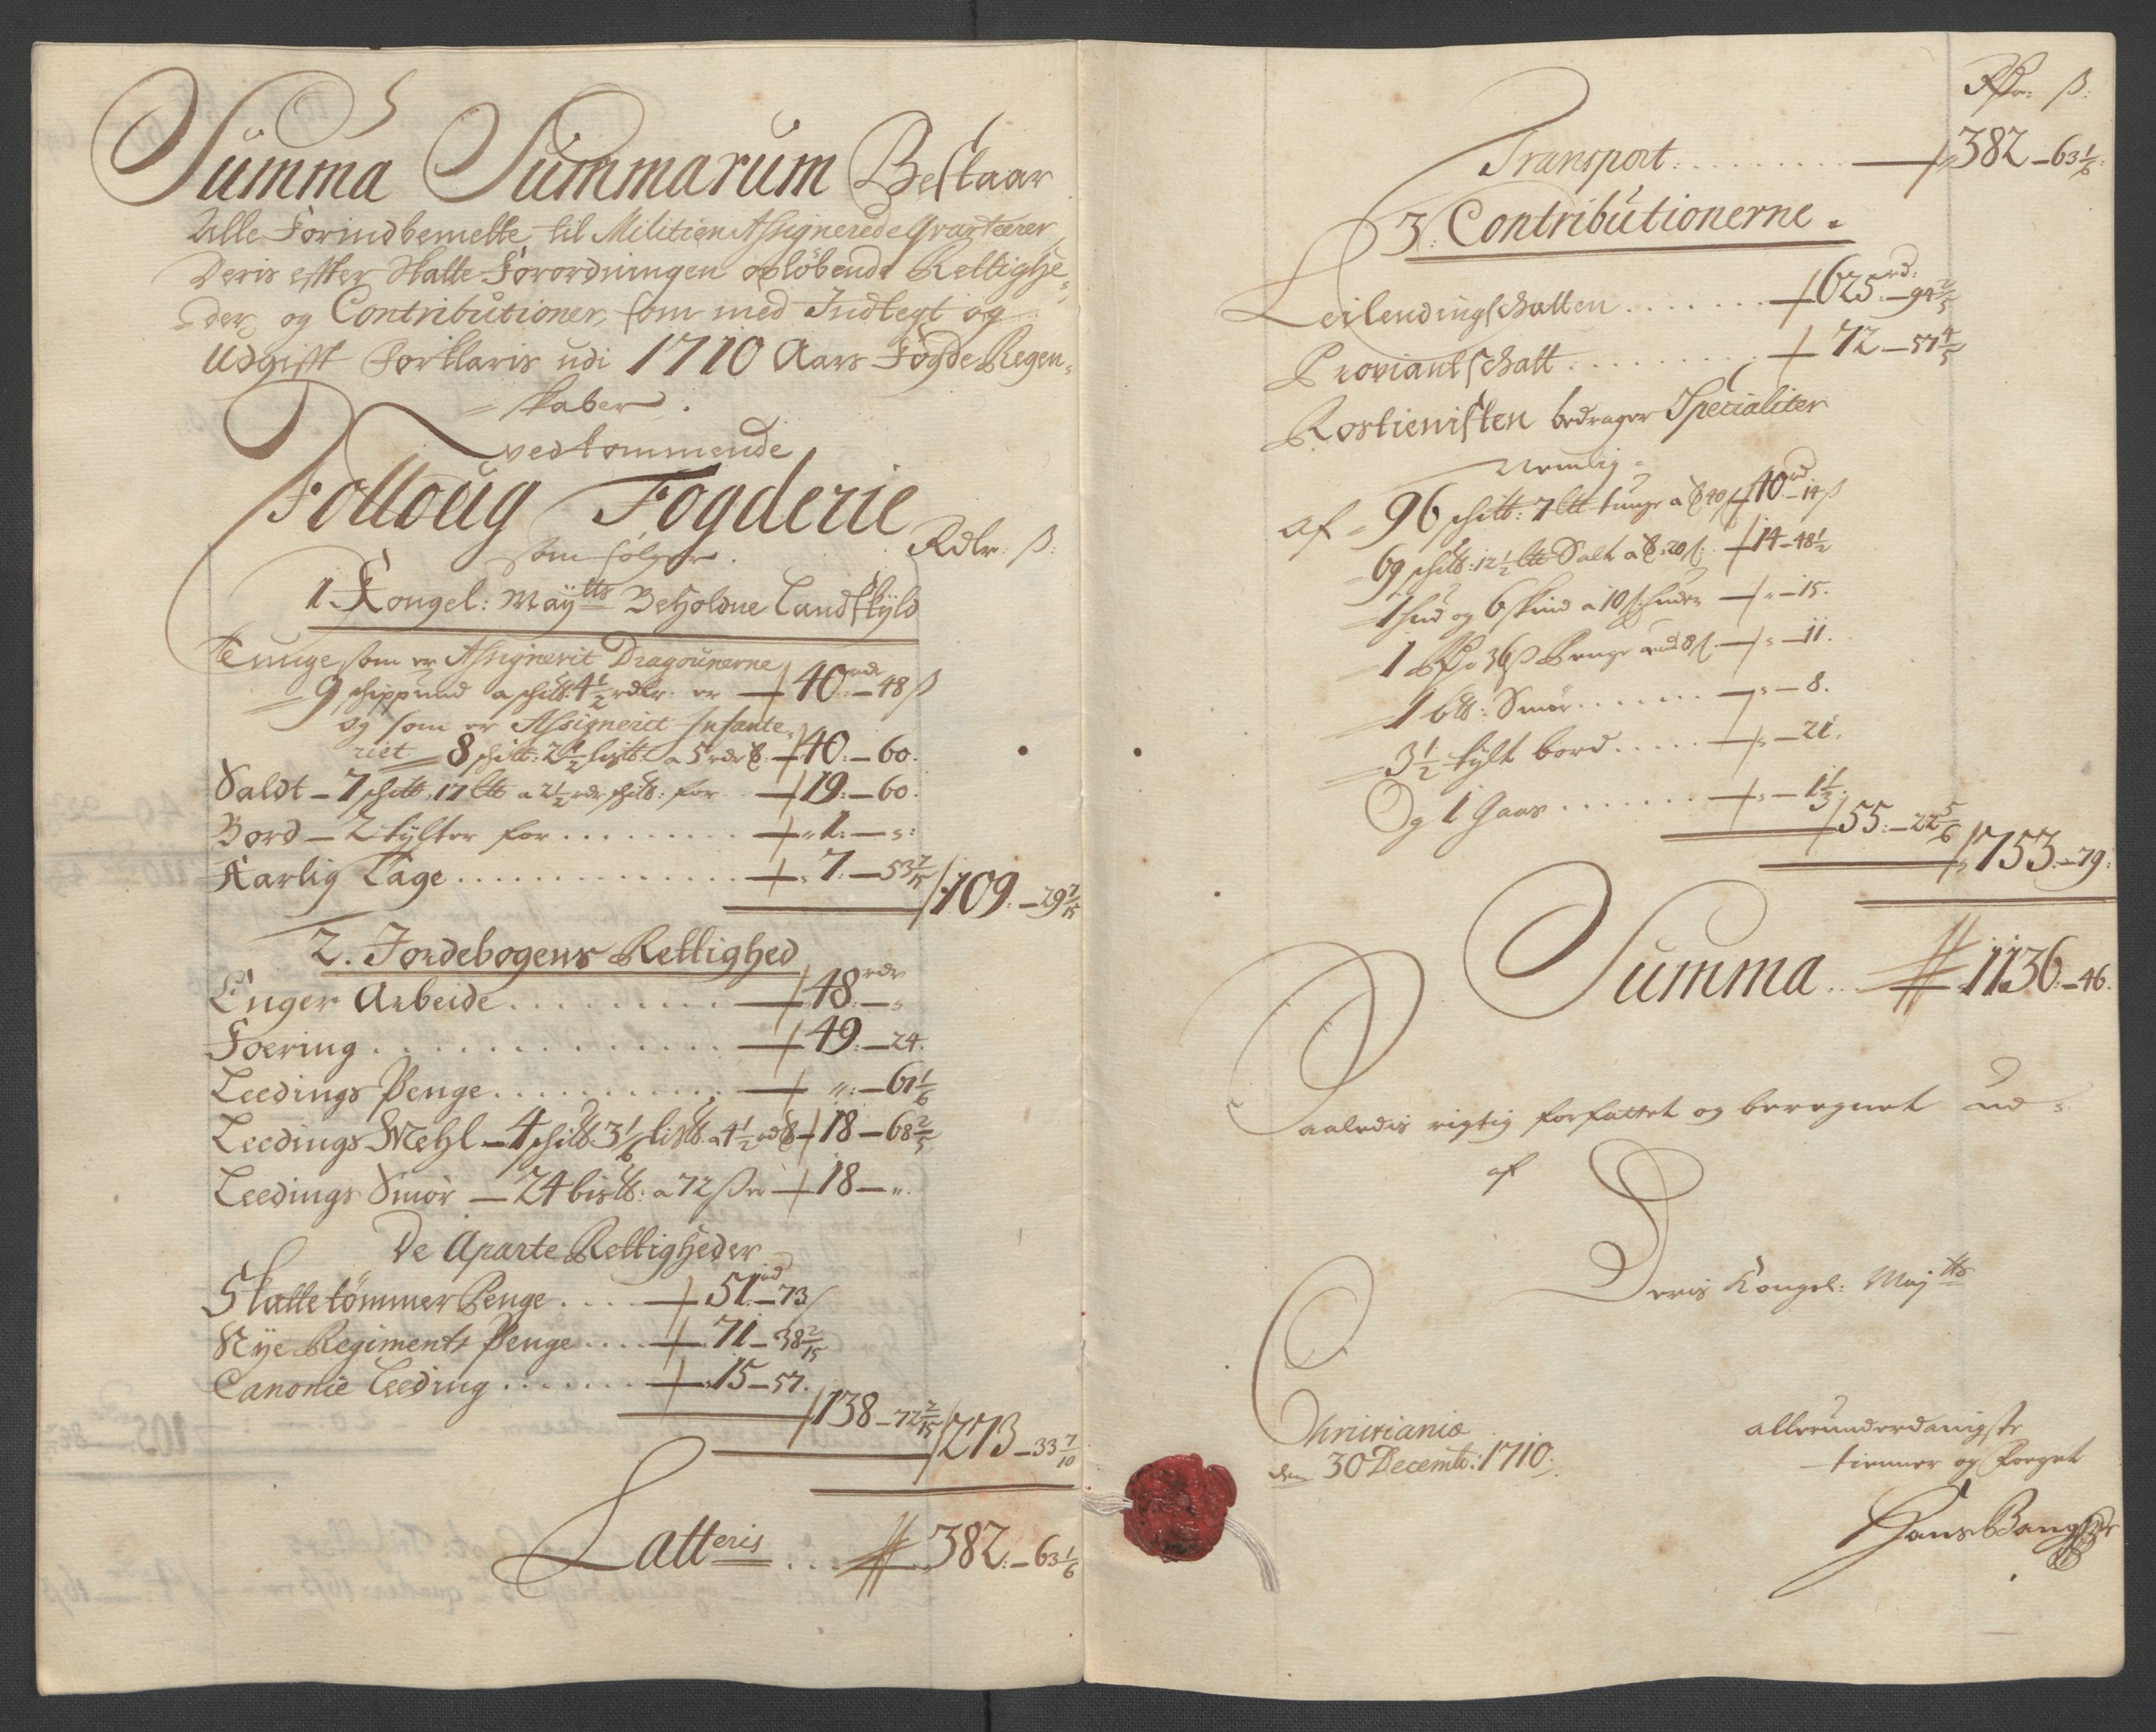 Summa Summarum Bestaar
Alle Forindbemelte til Militien Assignerede Qvarteerer
Deris efter Skatte Forordningen opløbende Rettighe-
der, og Contributioner, som med Indtegt og
Udgift Forklaris udi 1710 Aars Fogde Regen-
skaber.
vedkommende
Folloug Fogderie
som følger.
Rdlr: ß:
1. Kongel: Maytts Beholdne Landskyld
Tunge som er Assignerit Dragounerne
9 schippund a schit 4 1/2 rdlr: er 40 rdr — 48 ß
og som er Assignerit Infante-
riet 8 schtt: 2 1/2 listt a 5 rdr 40: — 60.
Saldt — 7 schtt 17 ltt a 2 1/2 rdr schtt: for 19: — 60.
Bord — 2 tylter for . . . 1: — ":
Aarlig Tage . . . 7: — 53 7/15
109: — 29 7/15
2. Jordebogens Rettighed
Enger Arbeide . . . 48 rdr: — "
Foering . . . 49: — 24.
Leedings Penge . . . ": — 61 1/6
Leedings Mehl — 4 schtt 3 1/6 listt a 4 1/2 rd 18 — 68 2/5
Leedings Smør — 24 bistt: a 72 ß er 18 — ".
De Aparte Rettigheder
Skattetømmer Penge . . . 51 rd — 73
Nye Regiments Penge . . . 71 — 38 2/15
Canonie Leeding . . . 15 — 57.
138 — 72 2/15
273 — 33 7/10
Latteris . . . 382: — 63 1/6
Rdr: ß:
Transport: . . . 382 — 63 1/6:
3. Contributionerne.
Leilendingschatten . . . 625 rd: — 94 2/5
Proviantschatt . . . 72 — 57 4/5
Rostienisten bedrager Specialiter
Nemlig
af 96 schtt: 7 ltt tunge a 40 ß 40 rd — 14 ß
69 schtt: 12 1/2 ltt Salt a 20 ß: 14 — 48 1/2
1 hud og 6 skind a 10 ß huden " — 15.
1 Rdr 36 ß Penge 8 ß " — 11.
1 btt: Smør . . . " — 8.
3 1/2 tylt bord . . . " — 21.
Og 1 Gaas . . . " — 1 1/3.
55: — 22 5/6
753: — 79:
Summa . . 1136: — 46.
Saaledis rigtig forfattet og beregnet ud-
af
Deris Kongel: Maytts
Christiania
den 30 Decembr: 1710.
allerunderdanigste
tienner og Foeget
Hans Bang